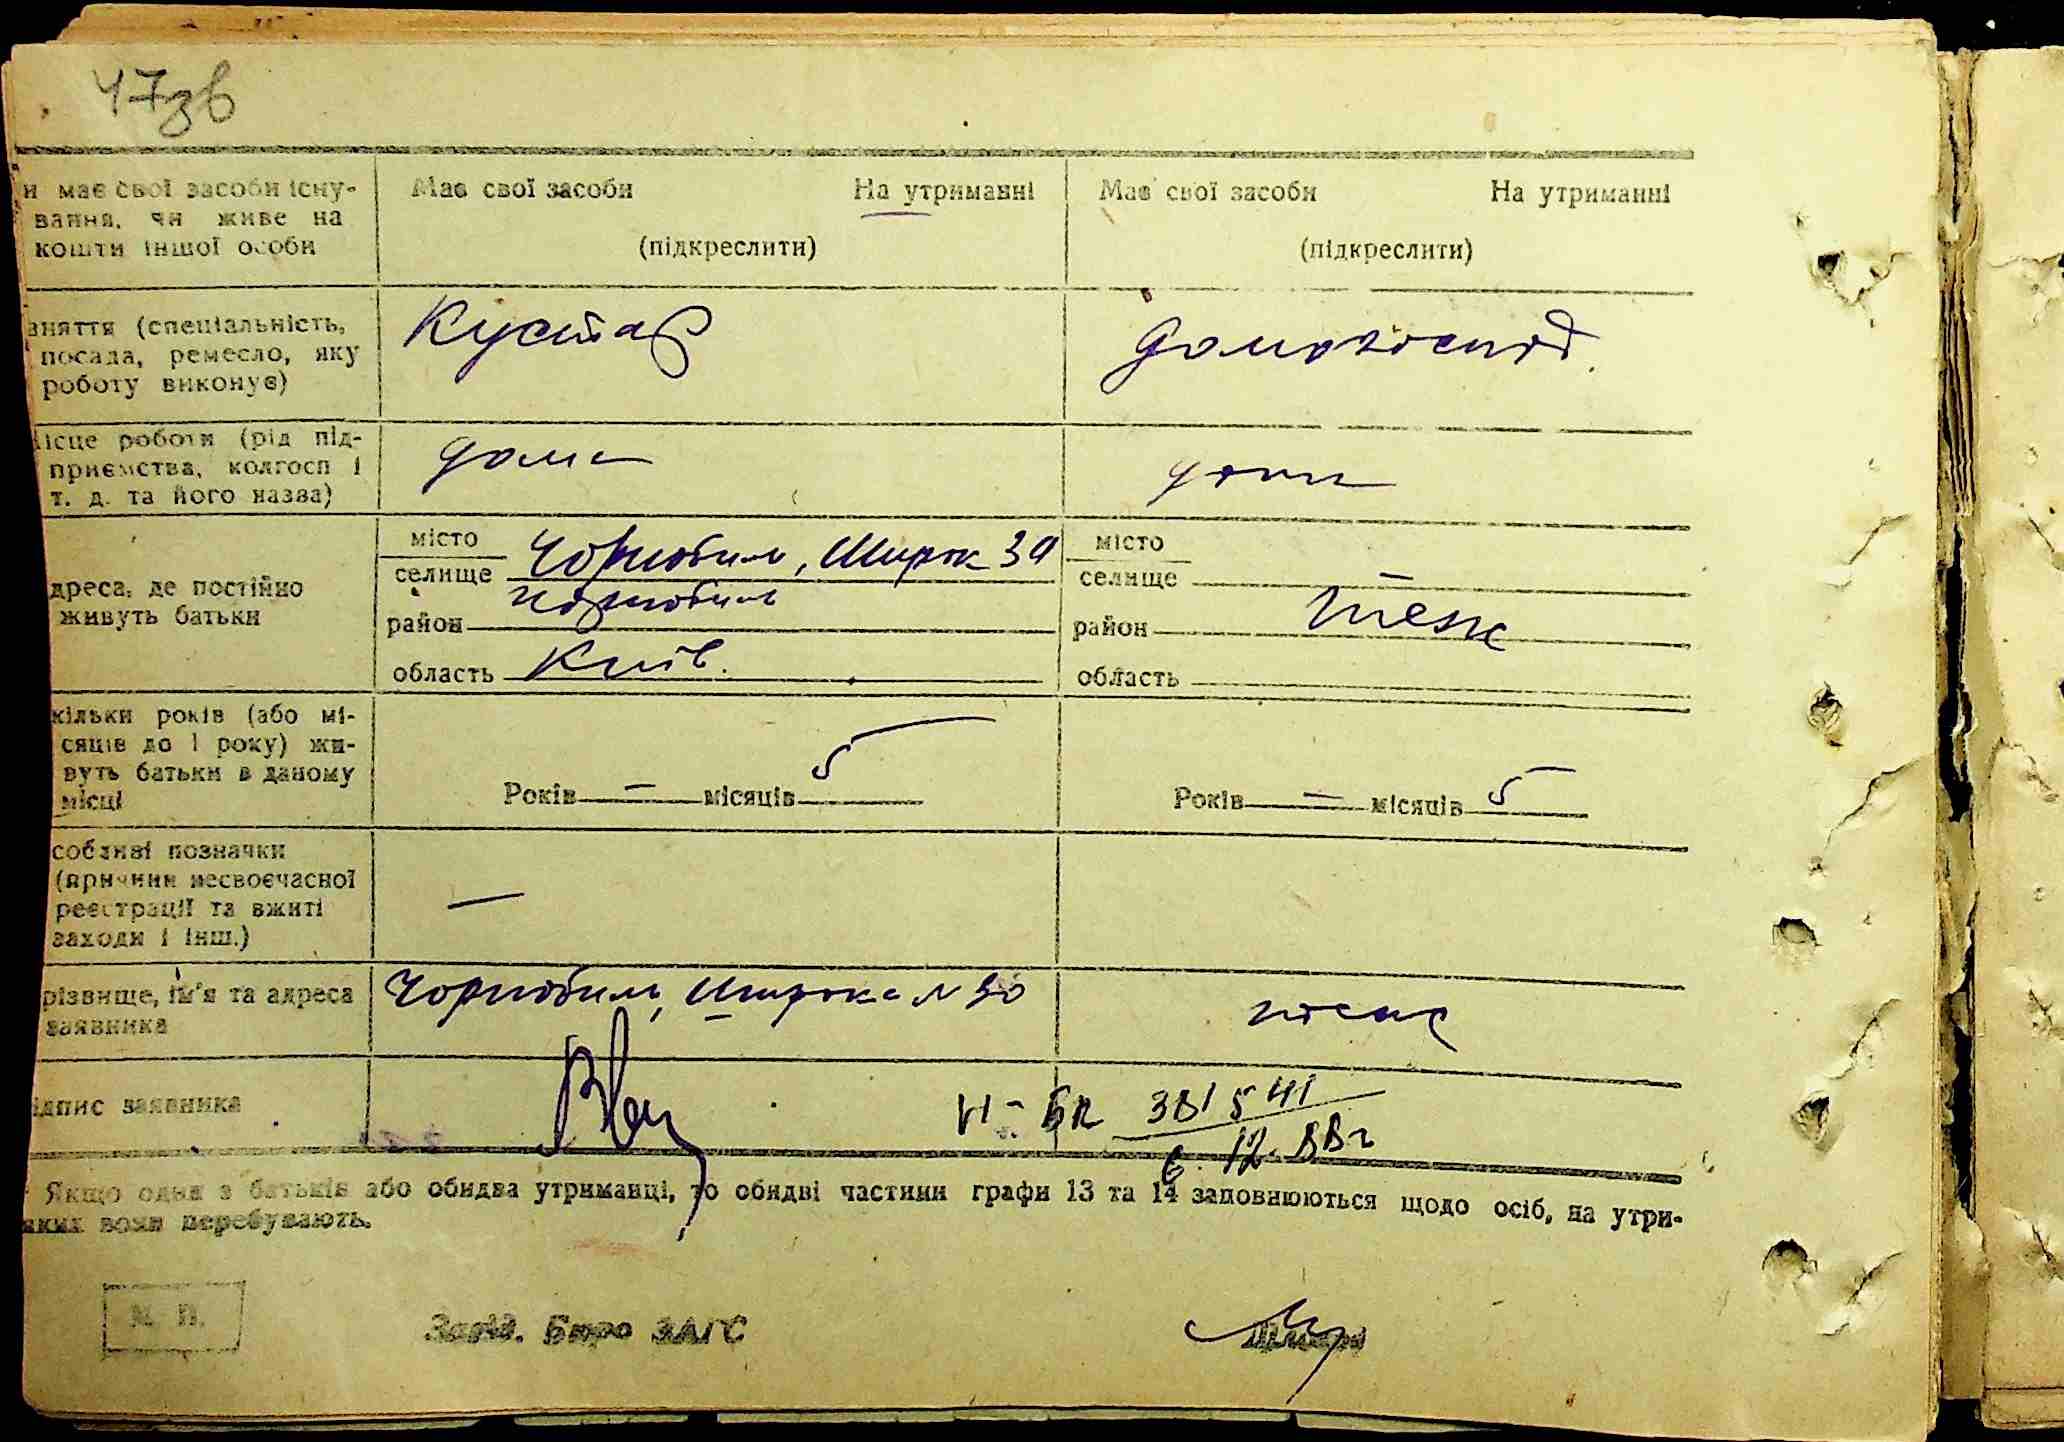 47зв
и має свої засоби існу- Має свої засоби На утриманні Має свої засоби На утриманні
вання, чи живе на
кошти іншої особи (підкреслити) (підкреслити)
аняття (спеціальність, Кустар домогоспод.
посада, ремесло, яку
роботу виконує)
ісце роботи (рід під- дома дома
приємства, колгосп і
т. д. та його назва)
дреса, де постійно
живуть батьки
місто місто
селище Чорнобиль, Широк 30 селище —
район Чорнобиль район теж
область Київ. область
кільки років (або мі-
сяців до 1 року) жи-
вуть батьки в даному
місці
Років — місяців 5 Років — місяців 5
собливі позначки
(причини несвоєчасної
реєстрації та вжиті —
заходи і інш.)
різвище, ім'я та адреса Чорнобиль, Широка № 30
заявника
ідпис заявника
II-БК 381541
6.12.88г
Якщо один з батьків або обидва утриманці, то обидві частини графи 13 та 14 заповнюються щодо осіб, на утри-
яких вони перебувають.
М. П. Завід. Бюро ЗАГС